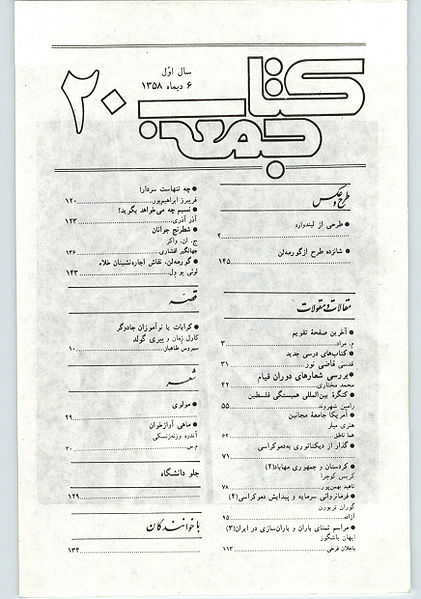 کتاب جمعه
سال اوّل
۶ دیماه ۱۳۵۸
۲۰
طرح و عکس
● طرحی از لیندوارد
۲
● شانزده طرح از گورمه‌لن
۱۴۵
مقالات و مقولات
● آخرین صفحهٔ تقویم
م. مراد ۳
● کتاب‌های درسی جدید
قدسی قاضی نور ۳۱
● بررسی شعارهای دوران قیام
محمد مختاری ۴۲
● کنگرهٔ بین‌المللی همبستگی فلسطین
رامین شهروند ۵۵
● آمریکا جامعهٔ مجانین
هنری میلر
هما ناطق ۶۲
● گذار از دیکتاتوری به‌دموکراسی
۷۱
● کردستان و جمهوری مهاباد(۲)
کریس کوچرا
ناهید بهمن‌پور ۷۸
● فرمانروائی سرمایه و پیدایش دموکراسی(۴)
گوران تربورن
آزاده ۹۵
● مراسم تمنای باران و باران‌سازی در ایران(۳)
ایهان باشگوز
باجلان فرخی ۱۱۳
● چه تنهاست سردار!
فریبرز ابراهیم‌پور ۱۲۰
● نسیم چه می‌خواهد بگوید!
آذر آذری ۱۲۳
● شطرنج جوانان
ج. ان. واکر
جهانگیر افشاری ۱۳۶
● گورمه‌لن، نقاش اجاره‌نشینان خلاء
لوئی پو دل ۱۴۳
قصّه
● کرابات یا نوآموزان جادوگر
کارل زمان و پیری گولد
سیروس طاهباز ۱۰
شعر
● مولوی
۲۹
● ماهی آوازخوان
آندره وزنه‌زنسکی
م.س. ۳۰
جلو دانشگاه
۱۲۹
با خوانندگان
۱۳۴